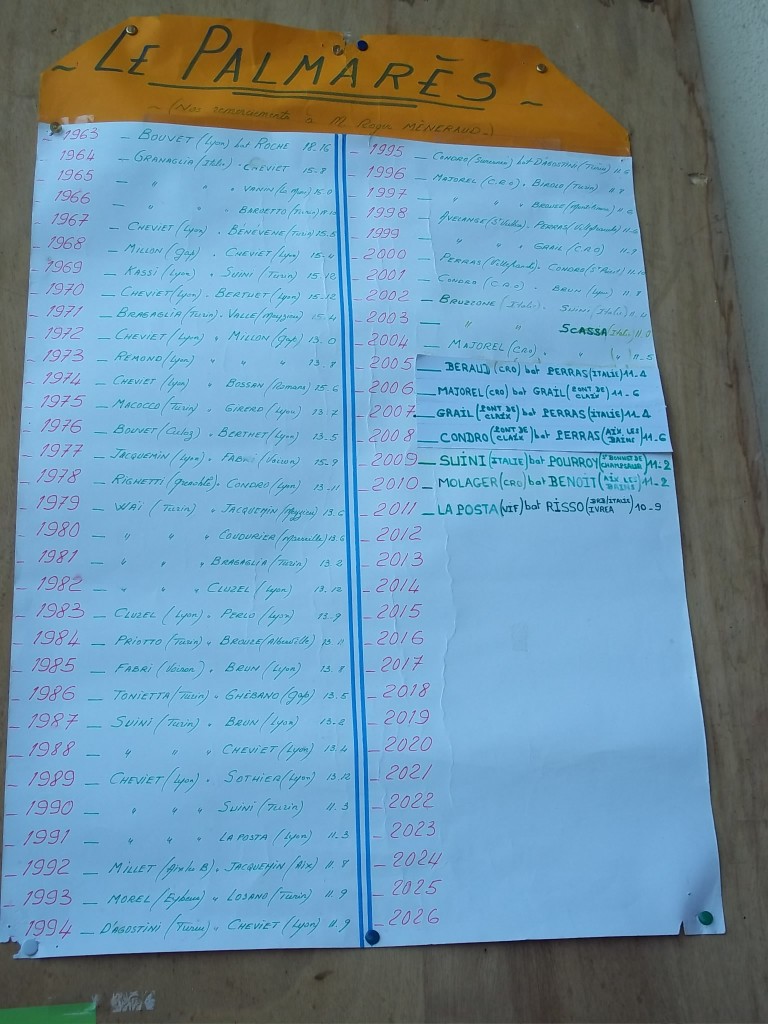 ~ LE PALMARÈS ~
~ (Nos remerciements à M. Roger MÉNÉGAUD~)
_ 1963 _ BOUVET (Lyon) bat ROCHE 18.16
_ 1964 _ GRANAGLIA (Italie) - CHEVIET 15-8
_ 1965 _ " " " VANIN 15-0
_ 1966 _ " " " BARDETTO (Turin)
_ 1967 _ CHEVIET (Lyon) - BENEVENE (Turin) 15.5
_ 1968 _ MILLON (Gap) . CHEVIET (Lyon) 15-4
_ 1969 _ KASSI (Lyon) " SUINI (Turin) 15.12
_ 1970 _ CHEVIET (Lyon) - BERTHET (Lyon) 15-12
_ 1971 _ BRAGAGLIA (Turin) - VALLE (Meyzieu) 15.4
_ 1972 _ CHEVIET (Lyon) " MILLON (Gap) 13.0
_ 1973 _ REMOND (Lyon) " " " 13.8
_ 1974 _ CHEVIET (Lyon) " BOSSAN (Romans) 15.6
_ 1975 _ MACOCCO (Turin) " GIRERD (Lyon) 13.7
_ 1976 _ BOUVET (Culoz) " BERTHET (Lyon) 13.5
_ 1977 _ JACQUEMIN (Lyon) . FABRI (Voiron) 15-9
_ 1978 _ RIGHETTI (Grenoble) . CONDRO (Lyon) 13.11
_ 1979 _ WAÏ (Turin) " JACQUEMIN (Meyzieu) 13.6
_ 1980 _ " " " COUDURIER (Marseille) 13.6
_ 1981 _ " " " BRAGAGLIA (Turin) 13.2
_ 1982 _ " " " CLUZEL (Lyon) 13.12
_ 1983 _ CLUZEL (Lyon) . PERLO (Lyon) 13.9
_ 1984 _ PRIOTTO (Turin) " BROUZE (Albertville) 13.11
_ 1985 _ FABRI (Voiron) . BRUN (Lyon) 13.8
_ 1986 _ TONIETTA (Turin) " GHÉBANO (Gap) 13.5
_ 1987 _ SUINI (Turin) " BRUN (Lyon) 13.2
_ 1988 _ " " " CHEVIET (Lyon) 13.4
_ 1989 _ CHEVIET (Lyon) . SOTHIER (Lyon) 13.12
_ 1990 _ " " " SUINI (Turin) 11.3
_ 1991 _ " " " LA POSTA (Lyon) 11.3
_ 1992 _ MILLET (Aix les B) . JACQUEMIN (Aix) 11.8
_ 1993 _ MOREL (Eybens) " LOSANO (Turin) 11.9
_ 1994 _ D'AGOSTINI (Turin) " CHEVIET (Lyon) 11.9
_ 1995 _ CONDRO bat D'AGOSTINI (Turin) 11.6
_ 1996 _ MAJOREL (C.R.O) . BIANCO (Turin) 11.8
_ 1997 _ " " " BROUZE 11.6
_ 1998 _ AVELANGE (St Vallier) . PERRAS (Villefranche) 11.6
_ 1999 _ " " " GRAIL (C.R.O) 11.7
_ 2000 _ PERRAS (Villefranche) . CONDRO (St Priest) 11.10
_ 2001 _ CONDRO (C.R.O) . BRUN (Lyon) 11.8
_ 2002 _ BRUZZONE (Italie) . SUINI (Italie) 11.4
_ 2003 _ " " SCASSA (Italie)
_ 2004 _ MAJOREL (CRO) . " (") 11-5
_ 2005 _ BERAUD (CRO) bat PERRAS (ITALIE) 11-4
_ 2006 _ MAJOREL (CRO) bat GRAIL (PONT DE CLAIX) 11-6
_ 2007 _ GRAIL (PONT DE CLAIX) bat PERRAS (ITALIE) 11-4
_ 2008 _ CONDRO (PONT DE CLAIX) bat PERRAS (AIX LES BAINS) 11-6
_ 2009 _ SUINI (ITALIE) bat POURROY (ST BONNET DE CHAMPSAUR) 11-2
_ 2010 _ MOLAGER (CRO) bat BENOÎT (AIX LES BAINS) 11-2
_ 2011 _ LA POSTA (VIF) bat RISSO (BRB/ITALIE IVREA) 10-9
_ 2012
_ 2013
_ 2014
_ 2015
_ 2016
_ 2017
_ 2018
_ 2019
_ 2020
_ 2021
_ 2022
_ 2023
_ 2024
_ 2025
_ 2026